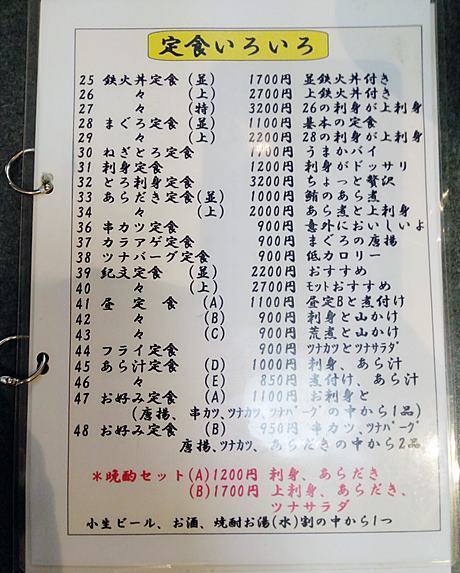 定食いろいろ
25 鉄火丼定食 (並) 1700円 並鉄火丼付き
26 々 (上) 2700円 上鉄火丼付き
27 々 (特) 3200円 26の刺身が上刺身
28 まぐろ定食 (並) 1100円 基本の定食
29 々 (上) 2200円 28の刺身が上刺身
30 ねぎとろ定食 1100円 うまかバイ
31 刺身定食 1200円 刺身がドッサリ
32 とろ刺身定食 3200円 ちょっと贅沢
33 あらだき定食(並) 1000円 鮪のあら煮
34 々 (上) 2000円 あら煮と上刺身
36 串カツ定食 900円 意外においしいよ
37 カラアゲ定食 900円 まぐろの唐揚
38 ツナバーグ定食 900円 低カロリー
39 紀文定食 (並) 2200円 おすすめ
40 々 (上) 2700円 モットおすすめ
41 昼定食 (A) 1100円 昼定Bと煮付け
42 々 (B) 900円 刺身と山かけ
43 々 (C) 900円 荒煮と山かけ
44 フライ定食 900円 ツナカツとツナサラダ
45 あら汁定食 (D) 1000円 刺身、あら汁
46 々 (E) 850円 煮付け、あら汁
47 お好み定食 (A) 1100円 お刺身と
(唐揚、串カツ、ツナカツ、ツナバーグの中から1品)
48 お好み定食 (B) 950円 串カツ、ツナバーグ
唐揚、ツナカツ、あらだきの中から2品
*晩酌セット(A)1200円 刺身、あらだき
(B)1700円 上刺身、あらだき、
ツナサラダ
小生ビール、お酒、焼酎お湯(水)割の中から1つ